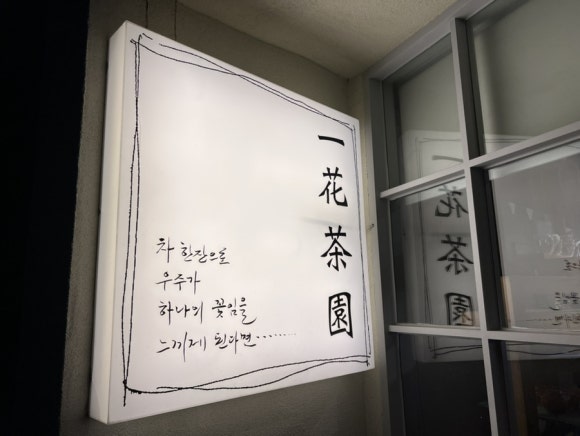 一花茶園
차 한잔으로
우주가
하나의 꽃임을
느끼게 된다면.........